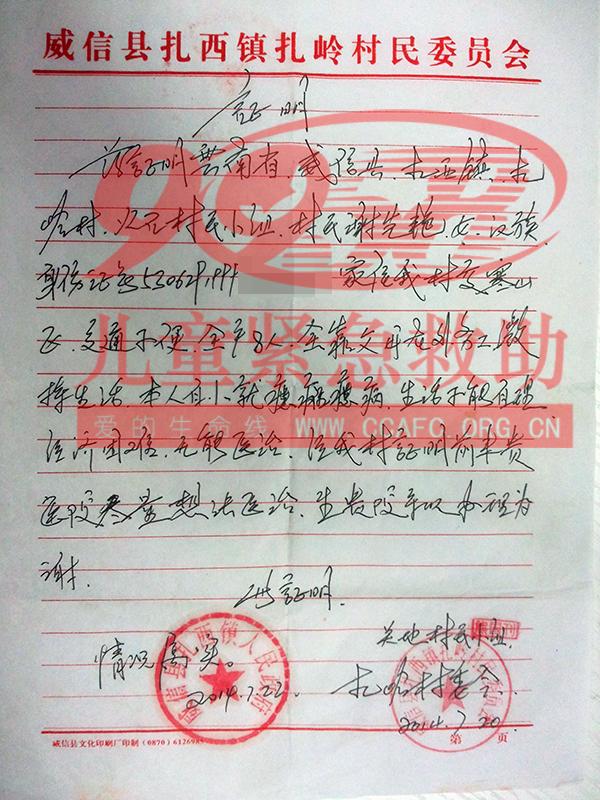 威信县扎西镇扎岭村民委员会
证明
兹证明云南省、威信县、扎西镇、扎
岭村、村民小组、村民谢先艳、女、汉族
身份证号530629199 家住我村交寒山
区、交通不便、全户8人、全靠父母在外务工维
持生活、本人自小就患癫痫病、生活不能自理
经济困难、无能医治、经我村证明前来贵
医院想法医治、望贵院予以办理为
谢.
此证明.
情况属实。
2014.7.22.
村民小组
扎岭村委会
2014.7.20.
威信县扎西镇人民政府
威信县文化印刷厂印制 (0870) 612698
第 页
儿童紧急救助
爱的生命线 WWW.CCAFC.ORG.CN